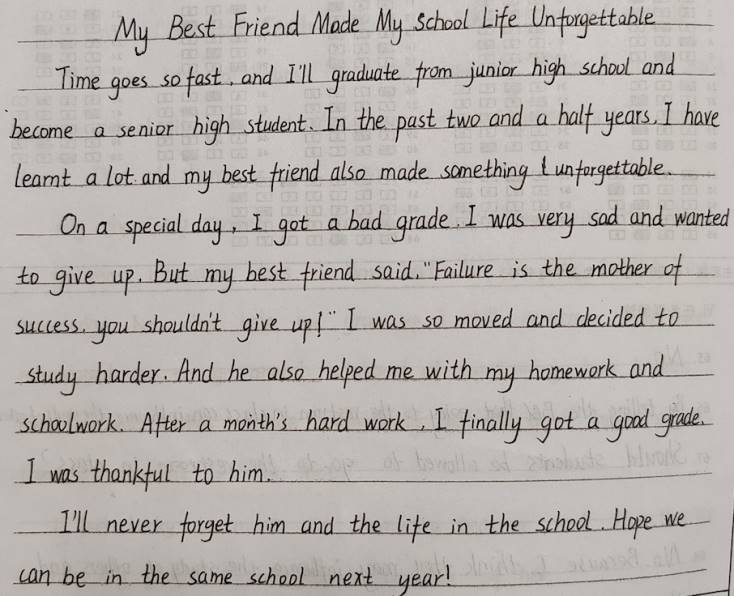 My Best Friend Made My School Life Unforgettable
Time goes so fast, and I'll graduate from junior high school and
become a senior high student. In the past two and a half years, I have
learnt a lot. and my best friend also made something unforgettable.
On a special day, I got a bad grade. I was very sad and wanted
to give up. But my best friend said. "Failure is the mother of
success. you shouldn't give up!" I was so moved and decided to
study harder. And he also helped me with my homework and
schoolwork. After a month's hard work, I finally got a good grade.
I was thankful to him.
I'll never forget him and the life in the school. Hope we
can be in the same school next year!